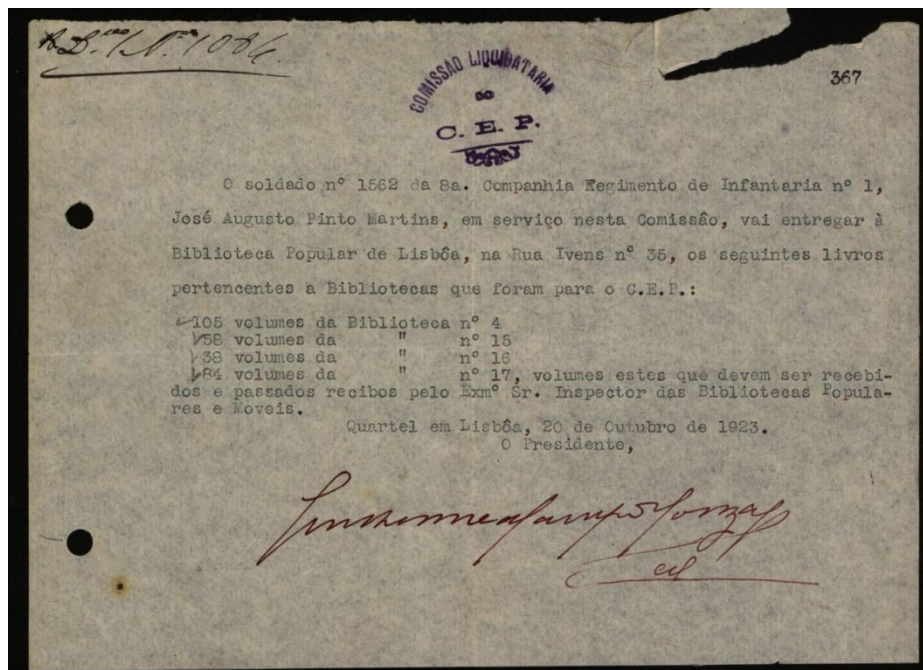 Nº 1086.
367
COMISSÃO LIQUIDATARIA
DO
C. E. P.
O soldado nº 1562 da 8a. Companhia Regimento de Infantaria nº 1,
José Augusto Pinto Martins, em serviço nesta Comissão, vai entregar à
Biblioteca Popular de Lisbôa, na Rua Ivens nº 35, os seguintes livros
pertencentes a Bibliotecas que foram para o C.E.P.:
105 volumes da Biblioteca nº 4
58 volumes da " nº 15
38 volumes da " nº 16
84 volumes da " nº 17, volumes estes que devem ser recebi-
dos e passados recibos pelo Exmº Sr. Inspector das Bibliotecas Popula-
res e Moveis.
Quartel em Lisbôa, 20 de Outubro de 1923.
O Presidente,